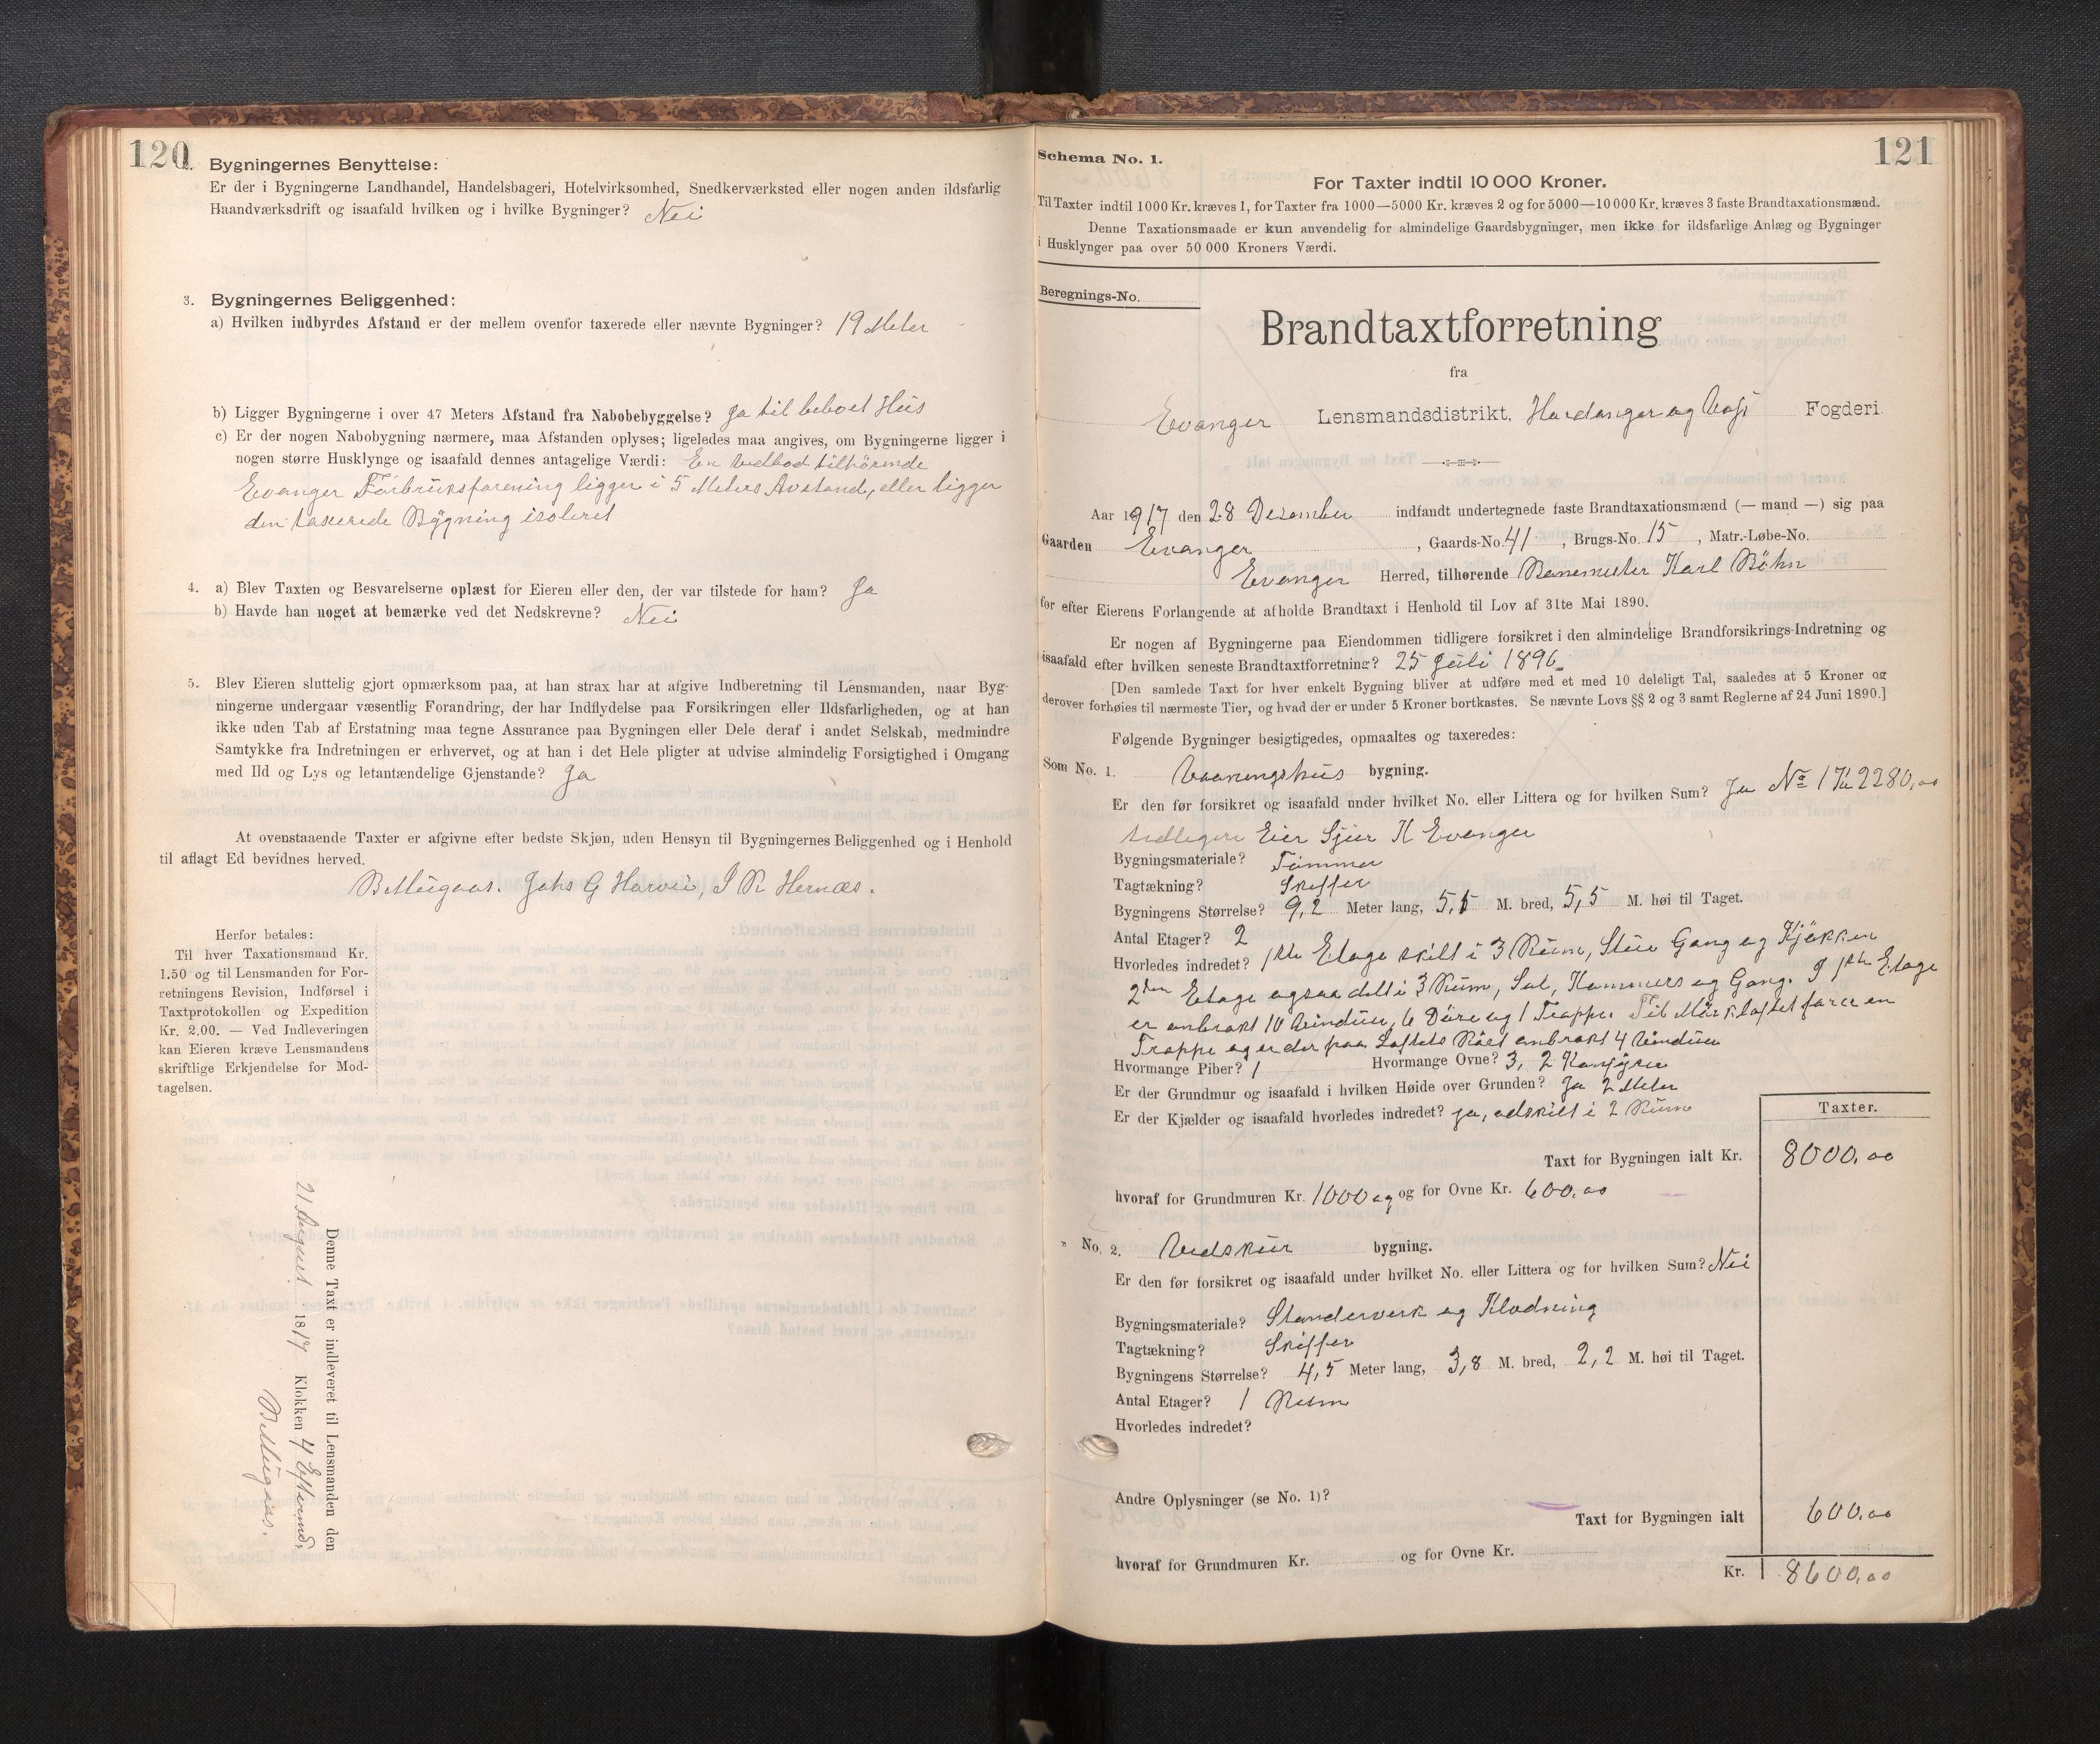 120
2. Bygningernes Benyttelse:
Er der i Bygningerne Landhandel, Handelsbageri, Hotelvirksomhed, Snedkerværksted eller nogen anden ildsfarlig
Haandværksdrift og isaafald hvilken og i hvilke Bygninger? Nei
3. Bygningernes Beliggenhed:
a) Hvilken indbyrdes Afstand er der mellem ovenfor taxerede eller nævnte Bygninger? 19 Meter
b) Ligger Bygningerne i over 47 Meters Afstand fra Nabobebyggelse? Ja til beboet Hus
c) Er der nogen Nabobygning nærmere, maa Afstanden oplyses; ligeledes maa angives, om Bygningerne ligger i
nogen større Husklynge og isaafald dennes antagelige Værdi: En Vedbod tilhörende
Evanger Forbruksforening ligger i 5 Meters Avstand, eller ligger
den taxerede Bygning isoleret
4. a) Blev Taxten og Besvarelserne oplæst for Eieren eller den, der var tilstede for ham? Ja
b) Havde han noget at bemærke ved det Nedskrevne? Nei
5. Blev Eieren sluttelig gjort opmærksom paa, at han strax har at afgive Indberetning til Lensmanden, naar Byg-
ningerne undergaar væsentlig Forandring, der har Indflydelse paa Forsikringen eller Ildsfarligheden, og at han
ikke uden Tab af Erstatning maa tegne Assurance paa Bygningen eller Dele deraf i andet Selskab, medmindre
Samtykke fra Indretningen er erhvervet, og at han i det Hele pligter at udvise almindelig Forsigtighed i Omgang
med Ild og Lys og letantændelige Gjenstande? Ja
At ovenstaaende Taxter er afgivne efter bedste Skjøn, uden Hensyn til Bygningernes Beliggenhed og i Henhold
til aflagt Ed bevidnes herved.
Johs G Horvei, I R Hernæs.
Herfor betales:
Til hver Taxationsmand Kr.
1.50 og til Lensmanden for For-
retningens Revision, Indførsel i
Taxtprotokollen og Expedition
Kr. 2.00. — Ved Indleveringen
kan Eieren kræve Lensmandens
skriftlige Erkjendelse for Mod-
tagelsen.
Denne Taxt er indleveret til Lensmanden den
21 August 1817 Klokken 4 Eftermd,
121
Schema No. 1.
For Taxter indtil 10 000 Kroner.
Til Taxter indtil 1000 Kr. kræves 1, for Taxter fra 1000—5000 Kr. kræves 2 og for 5000—10 000 Kr. kræves 3 faste Brandtaxationsmænd.
Denne Taxationsmaade er kun anvendelig for almindelige Gaardsbygninger, men ikke for ildsfarlige Anlæg og Bygninger
i Husklynger paa over 50 000 Kroners Værdi.
Beregnings-No.
Brandtaxtforretning
fra
Evanger Lensmandsdistrikt, Hardanger og Voss Fogderi
Aar 1917 den 28 Desember indfandt undertegnede faste Brandtaxationsmænd (— mand —) sig paa
Gaarden Evanger, Gaards-No. 41, Brugs-No. 15, Matr.-Løbe-No.
Evanger Herred, tilhørende Banemester Karl Böhn
for efter Eierens Forlangende at afholde Brandtaxt i Henhold til Lov af 31te Mai 1890.
Er nogen af Bygningerne paa Eiendommen tidligere forsikret i den almindelige Brandforsikrings-Indretning og
isaafald efter hvilken seneste Brandtaxtforretning? 25 Juli 1896
[Den samlede Taxt for hver enkelt Bygning bliver at udføre med et med 10 deleligt Tal, saaledes at 5 Kroner og
derover forhøies til nærmeste Tier, og hvad der er under 5 Kroner bortkastes. Se nævnte Lovs §§ 2 og 3 samt Reglerne af 24 Juni 1890.]
Følgende Bygninger besigtigedes, opmaaltes og taxeredes:
Som No. 1. Vaaningshus bygning.
Er den før forsikret og isaafald under hvilket No. eller Littera og for hvilken Sum? Ja No 17 2280,00
tidligere Eier K Evanger
Bygningsmateriale? Tömmer
Tagtækning? Skiffer
Bygningens Størrelse? 9,2 Meter lang, 5,5 M. bred, 5,5 M. høi til Taget.
Antal Etager? 2
Hvorledes indredet? 1ste Etage skilt i 3 Rum, Stue Gang og Kjøkken
2den Etage ogsaa delt i 3 Rum, Sal, Kammers og Gang. I 1ste Etage
er anbrakt 10 Vinduer, 6 Döre og 1 Trappe. Til Mörkloftet förer en
Trappe og er der paa Loftets Röst anbrakt 4 Vinduer
Hvormange Piber? 1 Hvormange Ovne? 3, 2 Komfyrer
Er der Grundmur og isaafald i hvilken Høide over Grunden? Ja 2 Meter
Er der Kjælder og isaafald hvorledes indredet? ja, adskilt i 2 Rum
Taxter.
Taxt for Bygningen ialt Kr. 8000,00
hvoraf for Grundmuren Kr. 1000 og og for Ovne Kr. 600,00
" No. 2. Vedskur bygning.
Er den før forsikret og isaafald under hvilket No. eller Littera og for hvilken Sum? Nei
Bygningsmateriale? Standerverk og Klædning
Tagtækning? Skiffer
Bygningens Størrelse? 4,5 Meter lang, 3,8 M. bred, 2,2 M. høi til Taget.
Antal Etager? 1 Rum
Hvorledes indredet?
Andre Oplysninger (se No. 1)?
Taxt for Bygningen ialt 600,00
hvoraf for Grundmuren Kr. og for Ovne Kr.
Kr. 8600,00